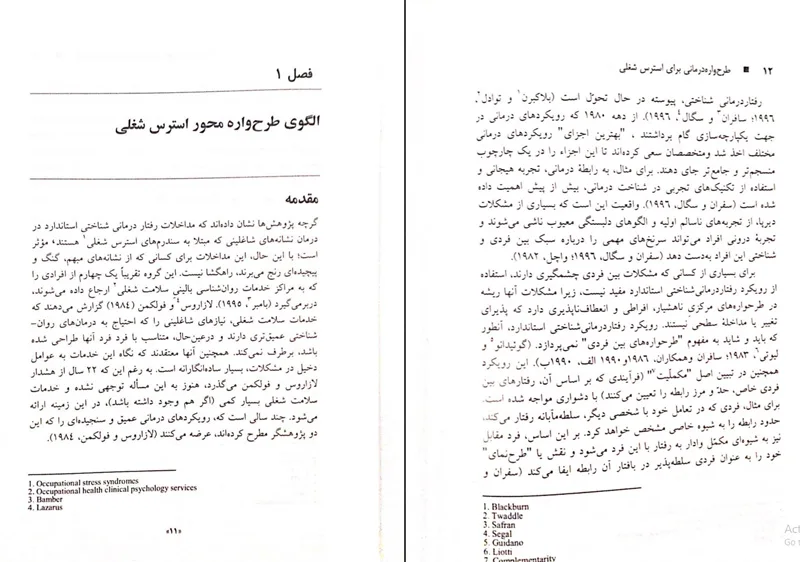 فصل ۱
الگوی طرح‌واره محور استرس شغلی
مقدمه
گرچه پژوهش‌ها نشان داده‌اند که مداخلات رفتار درمانی شناختی استاندارد در
درمان نشانه‌های شاغلینی که مبتلا به سندرم‌های استرس شغلی۱ هستند، مؤثر
است؛ با این حال، این مداخلات برای کسانی که از نشانه‌های مبهم، گنگ و
پیچیده‌ای رنج می‌برند، راهگشا نیست. این گروه تقریباً یک چهارم از افرادی را
که به مراکز خدمات روان‌شناسی بالینی سلامت شغلی۲ ارجاع داده می‌شوند،
دربرمی‌گیرد (بامبر۳، ۱۹۹۵). لازاروس۴ و فولکمن (۱۹۸۴) گزارش می‌دهند که
خدمات سلامت شغلی، نیازهای شاغلینی را که احتیاج به درمان‌های روان-
شناختی عمیق‌تری دارند و درعین‌حال، متناسب با فرد فرد آنها طراحی شده
باشد، برطرف نمی‌کند. همچنین آنها معتقدند که نگاه این خدمات به عوامل
دخیل در مشکلات، بسیار ساده‌انگارانه است. به رغم این که ۲۲ سال از هشدار
لازاروس و فولکمن می‌گذرد، هنوز به این مسأله توجهی نشده و خدمات
سلامت شغلی بسیار کمی (اگر هم وجود داشته باشد)، در این زمینه ارائه
می‌شود. چند سالی است که، رویکردهای درمانی عمیق و سنجیده‌ای را که این
دو پژوهشگر مطرح کرده‌اند، عرضه می‌کنند (لازاروس و فولکمن، ۱۹۸۴).
1. Occupational stress syndromes
2. Occupational health clinical psychology services
3. Bamber
4. Lazarus
«۱۱»
۱۲ ■ طرح‌واره‌درمانی برای استرس شغلی
رفتاردرمانی شناختی، پیوسته در حال تحوّل است (بلاکبرن۱ و توادل۲،
۱۹۹۶؛ سافران۳ و سگال۴، ۱۹۹۶). از دهه ۱۹۸۰ که رویکردهای درمانی در
جهت یکپارچه‌سازی گام برداشتند، "بهترین اجزای" رویکردهای درمانی
مختلف اخذ شد ومتخصصان سعی کرده‌اند تا این اجزاء را در یک چارچوب
منسجم‌تر و جامع‌تر جای دهند. برای مثال، به رابطهٔ درمانی، تجربه هیجانی و
استفاده از تکنیک‌های تجربی در شناخت درمانی، بیش از پیش اهمیت داده
شده است (سفران و سگال، ۱۹۹۶). واقعیت این است که بسیاری از مشکلات
دیرپا، از تجربه‌های ناسالم اولیه و الگوهای دلبستگی معیوب ناشی می‌شوند و
تجربهٔ درونی افراد می‌تواند سرنخ‌های مهمی را درباره سبک بین فردی و
شناختی این افراد به‌دست دهد (سفران و سگال، ۱۹۹۶؛ واچل، ۱۹۸۲).
برای بسیاری از کسانی که مشکلات بین فردی چشمگیری دارند، استفاده
از رویکرد رفتاردرمانی‌شناختی استاندارد مفید نیست، زیرا مشکلات آنها ریشه
در طرحواره‌های مرکزی ناهشیار، افراطی و انعطاف‌ناپذیری دارد که پذیرای
تغییر یا مداخلهٔ سطحی نیستند. رویکرد رفتاردرمانی‌شناختی استاندارد، آنطور
که باید و شاید به مفهوم "طرحواره‌های بین فردی" نمی‌پردازد. (گوئیدانو۵ و
لیوتی۶، ۱۹۸۳؛ سافران وهمکاران، ۱۹۸۶و۱۹۹۰ الف، ۱۹۹۰ب). این رویکرد
همچنین در تبیین اصل "مکملّیت۷" (فرآیندی که بر اساس آن، رفتارهای بین
فردی خاص، حدّ و مرز رابطه را تعیین می‌کنند) با دشواری مواجه شده است.
برای مثال، فردی که در تعامل خود با شخصی دیگر، سلطه‌مآبانه رفتار می‌کند،
حدود رابطه را به شیوه خاصی مشخص خواهد کرد. بر این اساس، فرد مقابل
نیز به شیوه‌ای مکمّل وادار به رفتار با این فرد می‌شود و نقش یا "طرح‌نمای"
خود را به عنوان فردی سلطه‌پذیر در بافتار آن رابطه ایفا می‌کند (سفران و
1. Blackburn
2. Twaddle
3. Safran
4. Segal
5. Guidano
6. Liotti
7. Complementarity